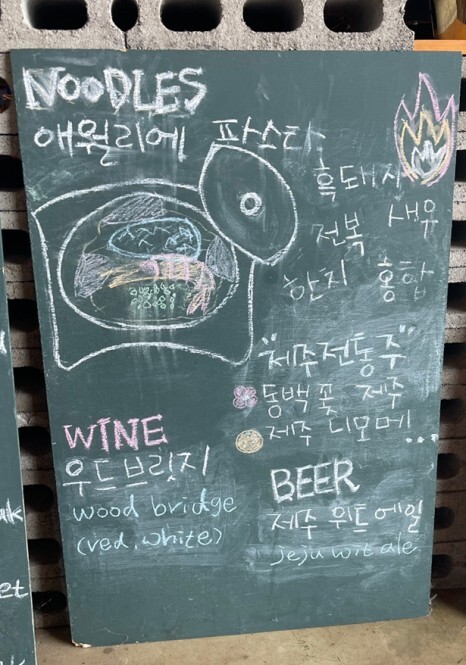 NOODLES
애월리에 파스타
흑돼지
전복 새우
한지 홍합
"제주전통주"
동백꽃 제주
제주 디모메 ...
WINE
우드브릿지
wood bridge
(red, white)
BEER
제주 위트 에일
jeju wit ale